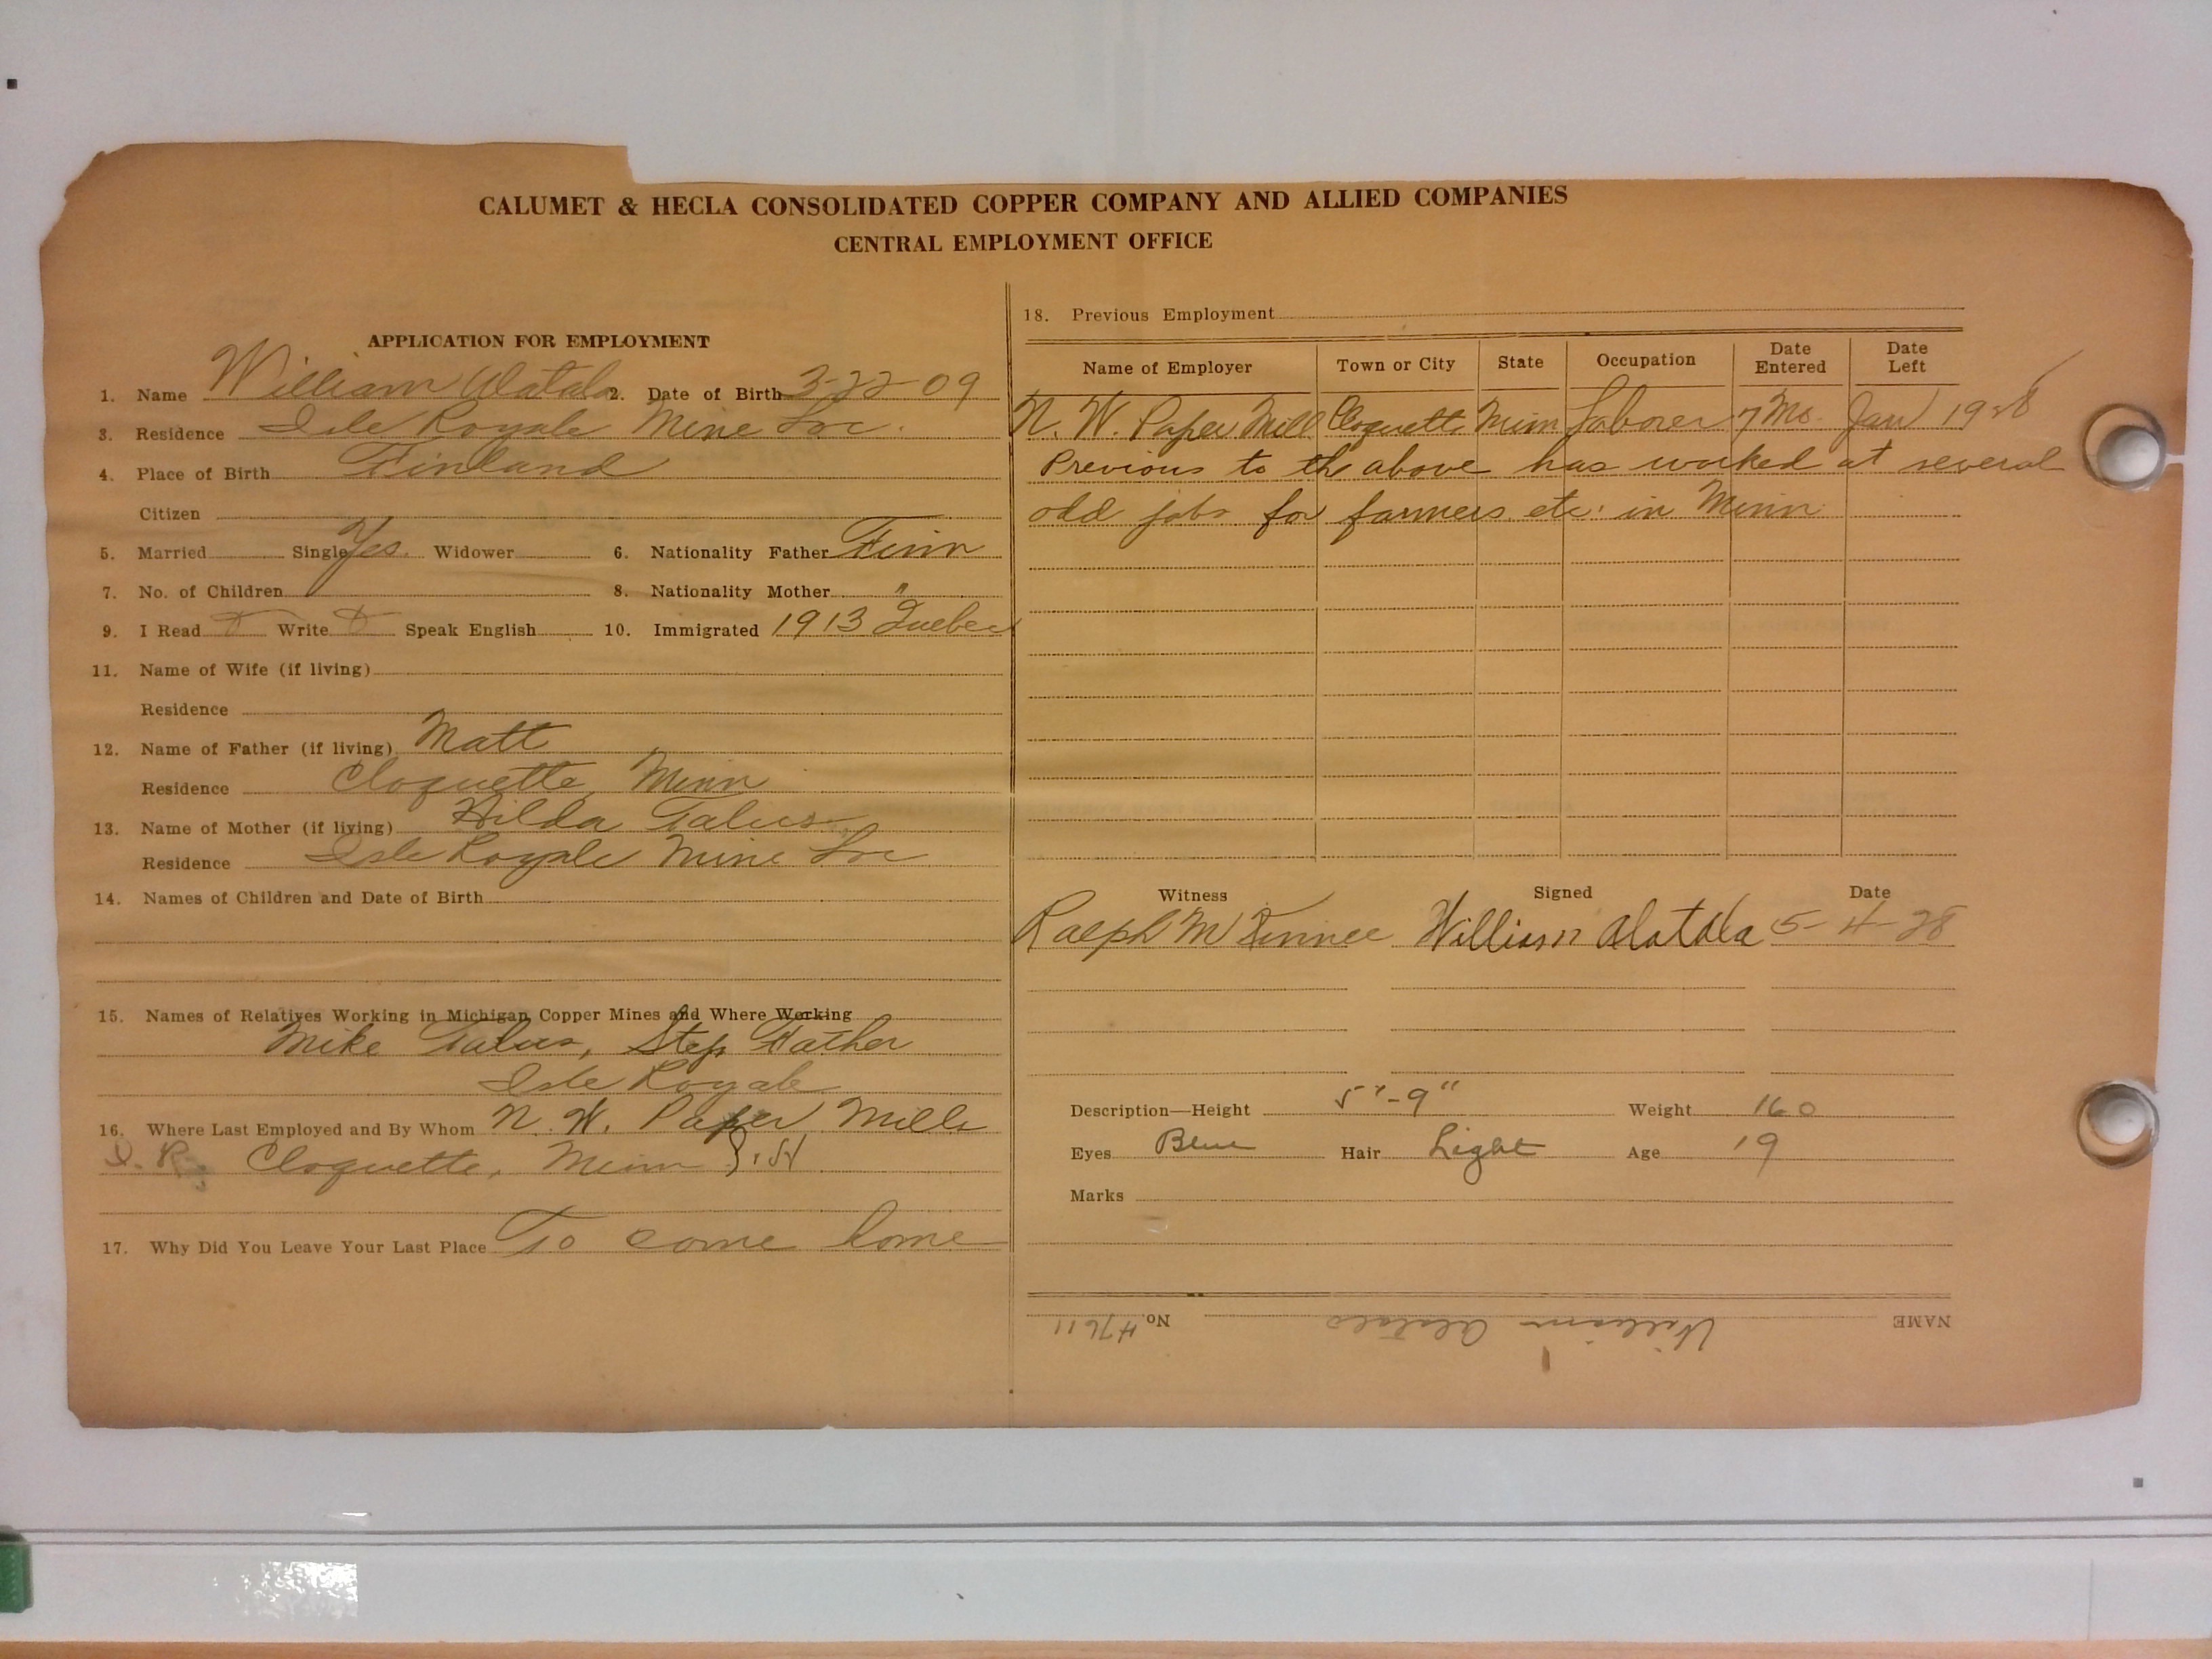 CALUMET & HECLA CONSOLIDATED COPPER COMPANY AND ALLIED COMPANIES
CENTRAL EMPLOYMENT OFFICE
APPLICATION FOR EMPLOYMENT
1. Name William Alatalo 2. Date of Birth 3-22-09
3. Residence Isle Royale Mine Loc.
4. Place of Birth Finland
Citizen
5. Married Single Yes. Widower 6. Nationality Father Finn
7. No. of Children 8. Nationality Mother "
9. I Read Write Speak English 10. Immigrated 1913 Quebec
11. Name of Wife (if living)
Residence
12. Name of Father (if living) Matt
Residence Cloquette, Minn
13. Name of Mother (if living) Hilda Talus
Residence Isle Royale Mine Loc
14. Names of Children and Date of Birth
15. Names of Relatives Working in Michigan Copper Mines and Where Working
Mike Talus, Step Father
Isle Royale
16. Where Last Employed and By Whom N. W. Paper Mills
I. R. Cloquette, Minn
17. Why Did You Leave Your Last Place To come home
18. Previous Employment
Name of Employer Town or City State Occupation Date Entered Date Left
N. W. Paper Mill Cloquette Minn Laborer 7 Mo. Jan 1928
Previous to the above has worked at several
odd jobs for farmers etc. in Minn
Witness Signed Date
Ralph William Alatalo 5-4-28
Description—Height 5'-9" Weight 160
Eyes Blue Hair Light Age 19
Marks
NAME William Alatalo No. 47611